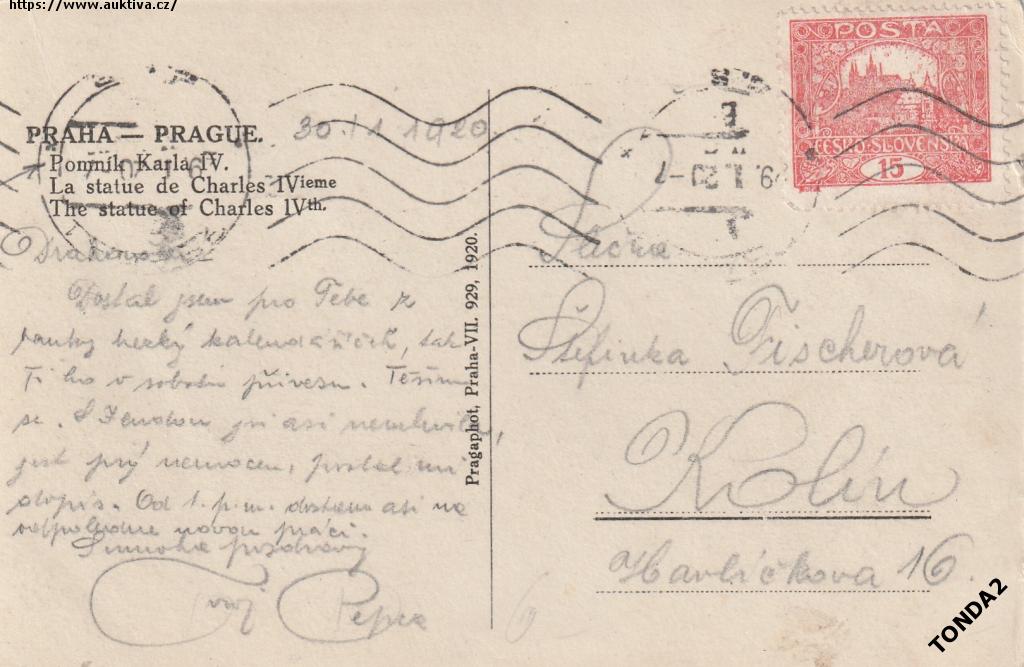 https://www.auktiva.cz/
POSTA
ČESKO-SLOVENSKÁ
15
PRAHA — PRAGUE.
Pomník Karla IV.
La statue de Charles IVieme
The statue of Charles IVth.
30./1 1920
I. 20 -7
Drahoušku
Dostal jsem pro Tebe z
banky hezký kalendáříček, tak
Ti ho v sobotu přivezu. Těším
se. S jsi asi nemluvila,
jest prý nemocen, poslal mi
dopis. Od 1. p.m. dostanu asi na
odpoledne novou práci.
Srdečné pozdravy
Tvůj Pepca
Pragaphot, Praha-VII. 929, 1920.
Slečna
Štefinka Fischerová
Kolín
Havlíčkova 16.
TONDA2